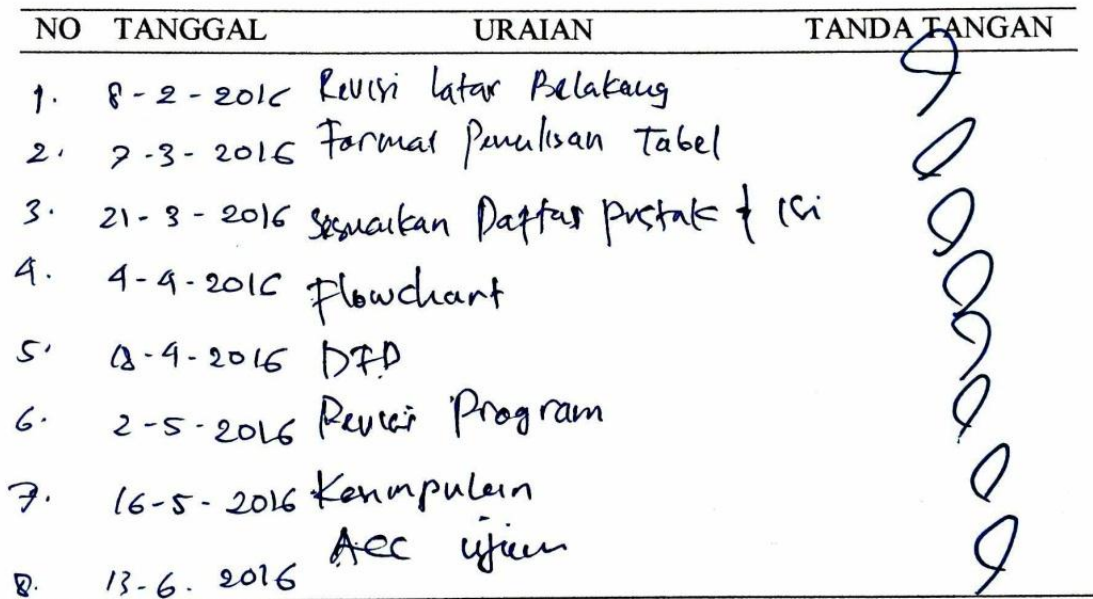 NO TANGGAL URAIAN TANDA TANGAN
1. 8-2-2016 Revisi Latar Belakang
2. 7-3-2016 Format Penulisan Tabel
3. 21-3-2016 Sesuaikan Daftar pustak & isi
4. 4-4-2016 Flowchart
5. 18-4-2016 DFD
6. 2-5-2016 Revisi Program
7. 16-5-2016 Kesimpulan
Acc ujian
8. 13-6. 2016